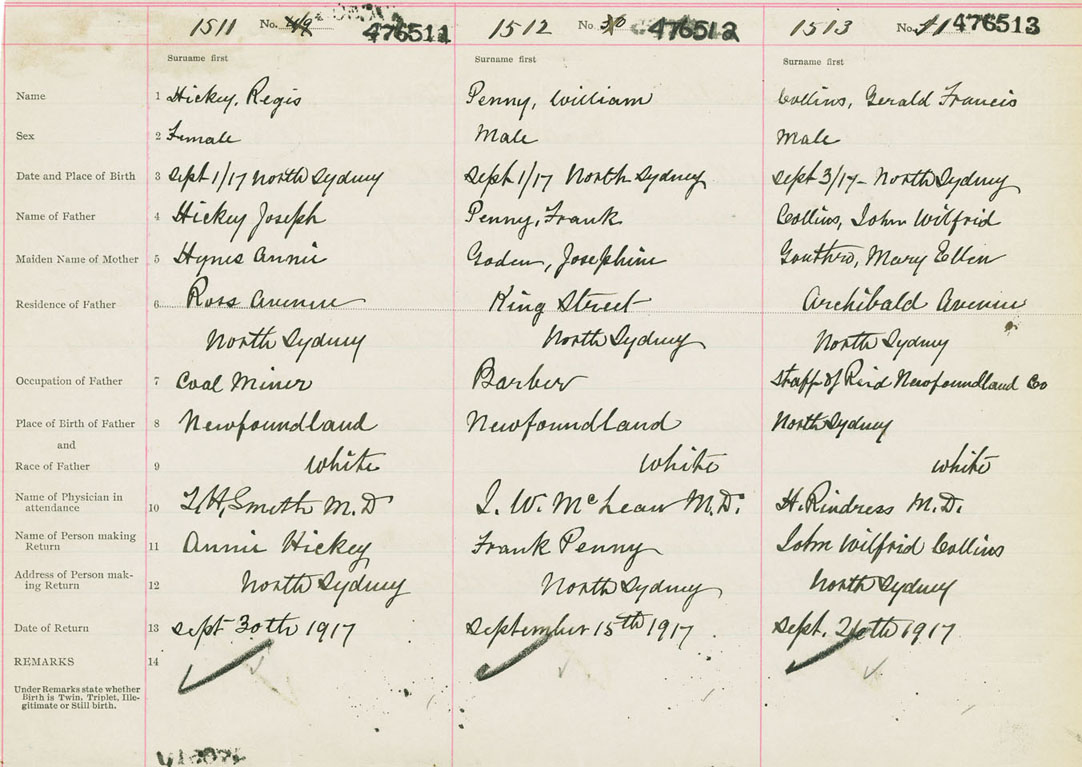 1511 No. 476511 1512 No. 30 476512 1513 No. 476513
Surname first Surname first Surname first
Name 1 Hickey, Regis Penny, William Collins, Gerald Francis
Sex 2 Female Male Male
Date and Place of Birth 3 Sept 1/17 North Sydney Sept 1/17 North Sydney Sept 3/17 - North Sydney
Name of Father 4 Hickey Joseph Penny, Frank Collins, John Wilfrid
Maiden Name of Mother 5 Hynes Annie Goden, Josephine Gouthro, Mary Ellen
Residence of Father 6 Ross Avenue King Street Archibald Avenue
North Sydney North Sydney North Sydney
Occupation of Father 7 Coal Miner Barber Staff of Reid Newfoundland Co
Place of Birth of Father 8 Newfoundland Newfoundland North Sydney
and
Race of Father 9 White White White
Name of Physician in
attendance 10 Smith M.D. W. McLean M.D. H. Rindress M.D.
Name of Person making
Return 11 Annie Hickey Frank Penny John Wilfrid Collins
Address of Person mak-
ing Return 12 North Sydney North Sydney North Sydney
Date of Return 13 Sept 30th 1917 September 15th 1917 Sept. 1917
REMARKS 14
Under Remarks state whether
Birth is Twin, Triplet, Ille-
gitimate or Still birth.